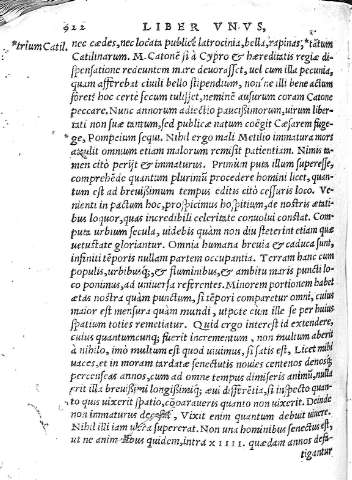 922 LIBER VNVS,
*trium Catil. nec cædes, nec locata publicè latrocinia, bella, rapinas, *tãtum
Catilinarum. M. Catonẽ si à Cypro & hæreditatis regiæ di-
spensatione redeuntem mare deuorasset, uel cum illa pecunia,
quam afferebat ciuili bello stipendium, nonne illi bene actum
foret? hoc certè secum tulisset, neminẽ ausurum coram Catone
peccare. Nunc annorum adiectio paucissimorum, uirum liber-
tati non suæ tantum, sed publicæ natum coëgit Cæsarem fuge-
ge, Pompeium sequi. Nihil ergo mali Metilio immatura mors
attulit omnium etiam malorum remisit patientiam. Nimis ta-
men citò perijt & immaturus. Primùm puta illum superesse,
comprehẽde quantum plurimũ procedere homini licet, quan-
tum est ad breuissimum tempus editis citò cessuris loco. Ve-
nienti in pactum hoc, prospicimus hospitium, de nostris ætati-
bus loquor, quas incredibili celeritate conuolui constat. Com-
puta urbium secula, uidebis quàm non diu steterint etiam quæ
uetustate gloriantur. Omnia humana breuia & caduca sunt,
infiniti tẽporis nullam partem occupantia. Terram hanc cum
populis, urbibusq́;, & fluminibus, & ambitu maris puncti lo-
co ponimus, ad uniuersa referentes. Minorem portionem habet
ætas nostra quàm punctum, si tẽpori comparetur omni, cuius
maior est mensura quàm mundi, utpote cum ille se per huius
spatium toties remetiatur. Quid ergo interest id extendere,
cuius quantumcunq; fuerit incrementum, non multum aberit
à nihilo, imò multum est quod uiuimus, si satis est, Licet mihi
uaces, et in moram tardatæ senectutis nouies centenos denosq́;
percenseas annos, cum ad omne tempus dimiseris animũ, nulla
erit illa breuissimi longissimiq́; æui differẽtia, si inspecto quan-
to quis uixerit spatio, cõparaueris quanto non uixerit. Deinde
non immaturus Vixit enim quantum debuit uiuere.
Nihil illi iam ultra supererat. Non una hominibus senectus est,
ut ne animalibus quidem, intra XIIII. quædam annos defa-
tigantur